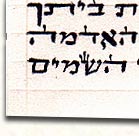 ת ביתך
האדמה
י השמים